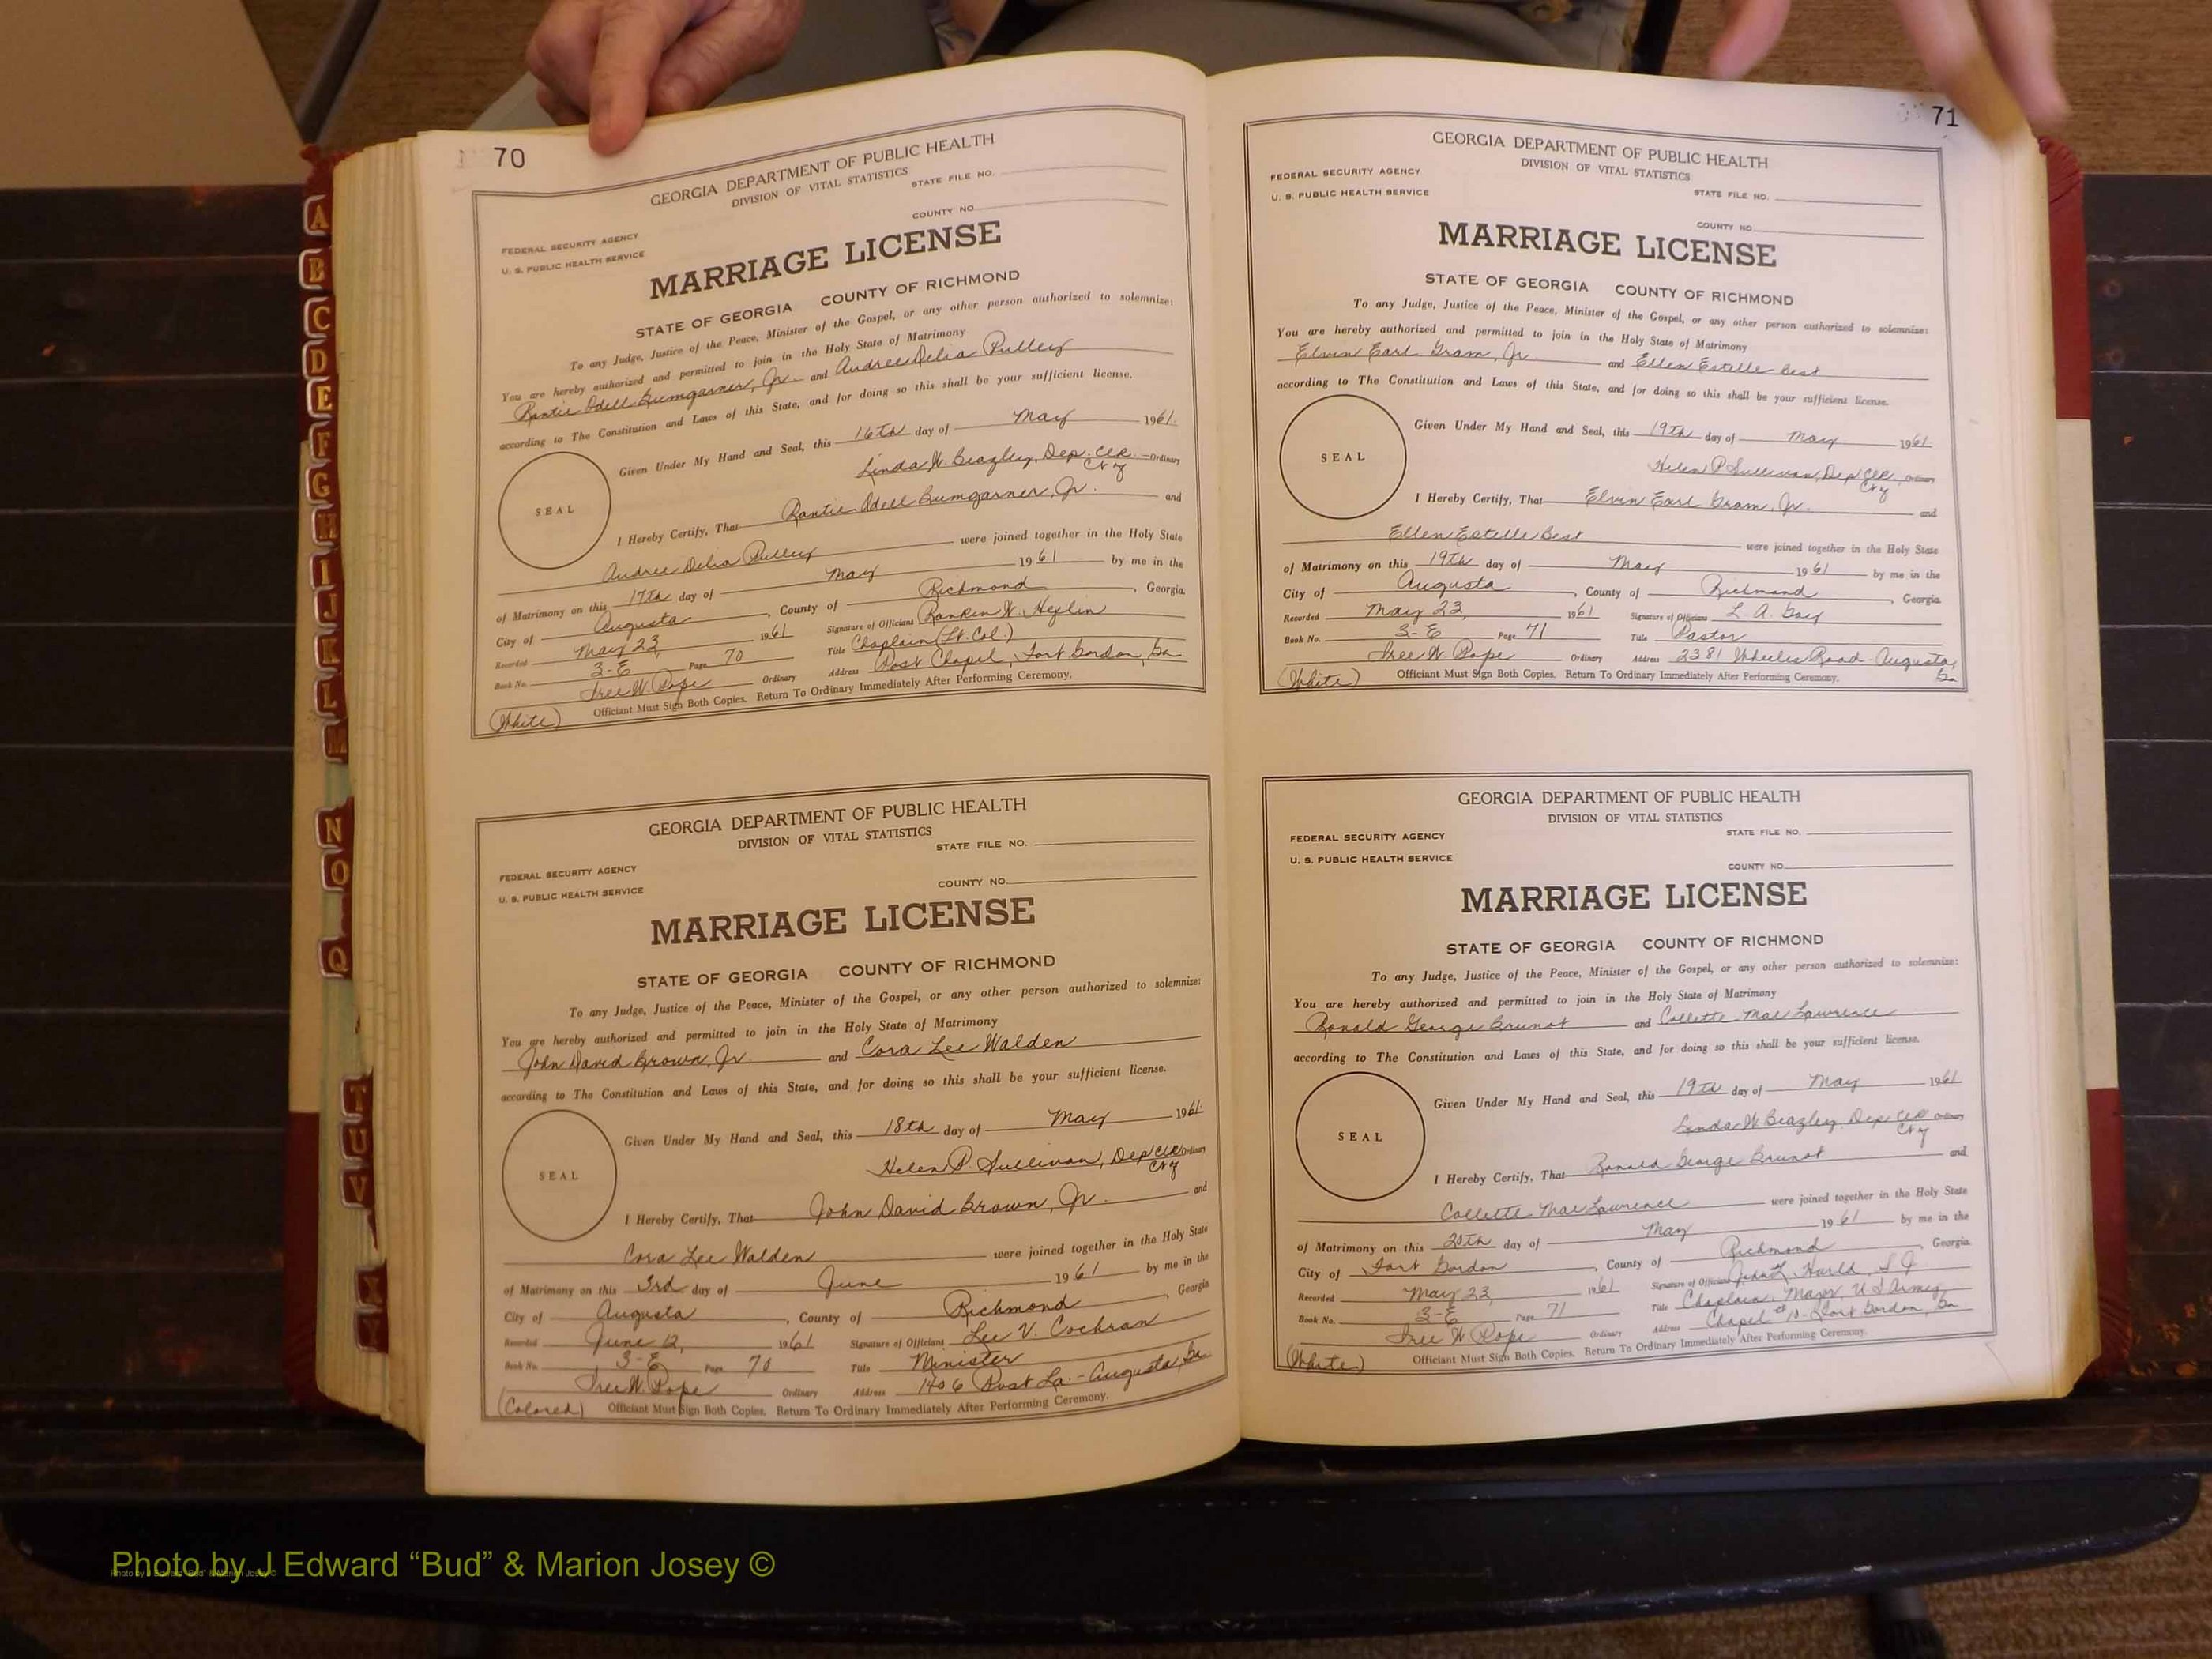 70
GEORGIA DEPARTMENT OF PUBLIC HEALTH
DIVISION OF VITAL STATISTICS
STATE FILE NO.
FEDERAL SECURITY AGENCY
COUNTY NO.
U. S. PUBLIC HEALTH SERVICE
MARRIAGE LICENSE
STATE OF GEORGIA COUNTY OF RICHMOND
To any Judge, Justice of the Peace, Minister of the Gospel, or any other person authorized to solemnize:
You are hereby authorized and permitted to join in the Holy State of Matrimony
Rantie Odell Bumgarner, Jr. and Audree Delia Pulley
according to The Constitution and Laws of this State, and for doing so this shall be your sufficient license.
Given Under My Hand and Seal, this 16th day of May 1961
Linda W. Beazley, Dep. Clk. Ordinary
Cty
SEAL
I Hereby Certify, That Rantie Odell Bumgarner, Jr. and
Audree Delia Pulley were joined together in the Holy State
of Matrimony on this 17th day of May 1961 by me in the
City of Augusta, County of Richmond, Georgia.
Recorded May 23, 1961 Signature of Officiant Rankin W.
Book No. 3-E Page 70 Title Chaplain (Lt. Col.)
Ordinary Address Post Chapel, Fort Gordon, Ga
(White) Officiant Must Sign Both Copies. Return To Ordinary Immediately After Performing Ceremony.
GEORGIA DEPARTMENT OF PUBLIC HEALTH
DIVISION OF VITAL STATISTICS
STATE FILE NO.
FEDERAL SECURITY AGENCY
COUNTY NO.
U. S. PUBLIC HEALTH SERVICE
MARRIAGE LICENSE
STATE OF GEORGIA COUNTY OF RICHMOND
To any Judge, Justice of the Peace, Minister of the Gospel, or any other person authorized to solemnize:
You are hereby authorized and permitted to join in the Holy State of Matrimony
John David Brown, Jr and Cora Lee Walden
according to The Constitution and Laws of this State, and for doing so this shall be your sufficient license.
Given Under My Hand and Seal, this 18th day of May 1961
Helen P. Sullivan, Dep Clk Ordinary
Cty
SEAL
I Hereby Certify, That John David Brown, Jr. and
Cora Lee Walden were joined together in the Holy State
of Matrimony on this 3rd day of June 1961 by me in the
City of Augusta, County of Richmond, Georgia
Recorded June 12, 1961 Signature of Officiant Lee V. Cochran
Book No. 3-E Page 70 Title Minister
Ordinary Address 1406 Post La. - Augusta, Ga
(Colored) Officiant Must Sign Both Copies. Return To Ordinary Immediately After Performing Ceremony.
71
GEORGIA DEPARTMENT OF PUBLIC HEALTH
DIVISION OF VITAL STATISTICS
FEDERAL SECURITY AGENCY
STATE FILE NO.
U. S. PUBLIC HEALTH SERVICE
COUNTY NO.
MARRIAGE LICENSE
STATE OF GEORGIA COUNTY OF RICHMOND
To any Judge, Justice of the Peace, Minister of the Gospel, or any other person authorized to solemnize:
You are hereby authorized and permitted to join in the Holy State of Matrimony
Elvin Earl Gram, Jr and Ellen Estelle Best
according to The Constitution and Laws of this State, and for doing so this shall be your sufficient license.
Given Under My Hand and Seal, this 19th day of May 1961
Helen P Sullivan, Dep Clk Ordinary
Cty
SEAL
I Hereby Certify, That Elvin Earl Gram, Jr. and
Ellen Estelle Best were joined together in the Holy State
of Matrimony on this 19th day of May 1961 by me in the
City of Augusta, County of Richmond, Georgia
Recorded May 23, 1961 Signature of Officiant L. A. Gay
Book No. 3-E Page 71 Title Pastor
Ordinary Address 2381 Wheeless Road - Augusta,
Ga
(White) Officiant Must Sign Both Copies. Return To Ordinary Immediately After Performing Ceremony.
GEORGIA DEPARTMENT OF PUBLIC HEALTH
DIVISION OF VITAL STATISTICS
FEDERAL SECURITY AGENCY
STATE FILE NO.
U. S. PUBLIC HEALTH SERVICE
COUNTY NO.
MARRIAGE LICENSE
STATE OF GEORGIA COUNTY OF RICHMOND
To any Judge, Justice of the Peace, Minister of the Gospel, or any other person authorized to solemnize:
You are hereby authorized and permitted to join in the Holy State of Matrimony
Ronald George Brunot and Collette Mae Lawrence
according to The Constitution and Laws of this State, and for doing so this shall be your sufficient license.
Given Under My Hand and Seal, this 19th day of May 1961
Linda W. Beazley, Dep Clk Ordinary
Cty
SEAL
I Hereby Certify, That Ronald George Brunot and
Collette Mae Lawrence were joined together in the Holy State
of Matrimony on this 20th day of May 1961 by me in the
City of Fort Gordon, County of Richmond, Georgia
Recorded May 23, 1961 Signature of Officiant S J
Book No. 3-E Page 71 Title Chaplain, Major, U S Army
Ordinary Address Chapel #10 - Fort Gordon, Ga
(White) Officiant Must Sign Both Copies. Return To Ordinary Immediately After Performing Ceremony.
A
B
C
D
E
F
G
H
I
J
K
L
M
N
O
Q
T
U
V
X
Y
Photo by J Edward “Bud” & Marion Josey ©
Photo by J Edward “Bud” & Marion Josey ©